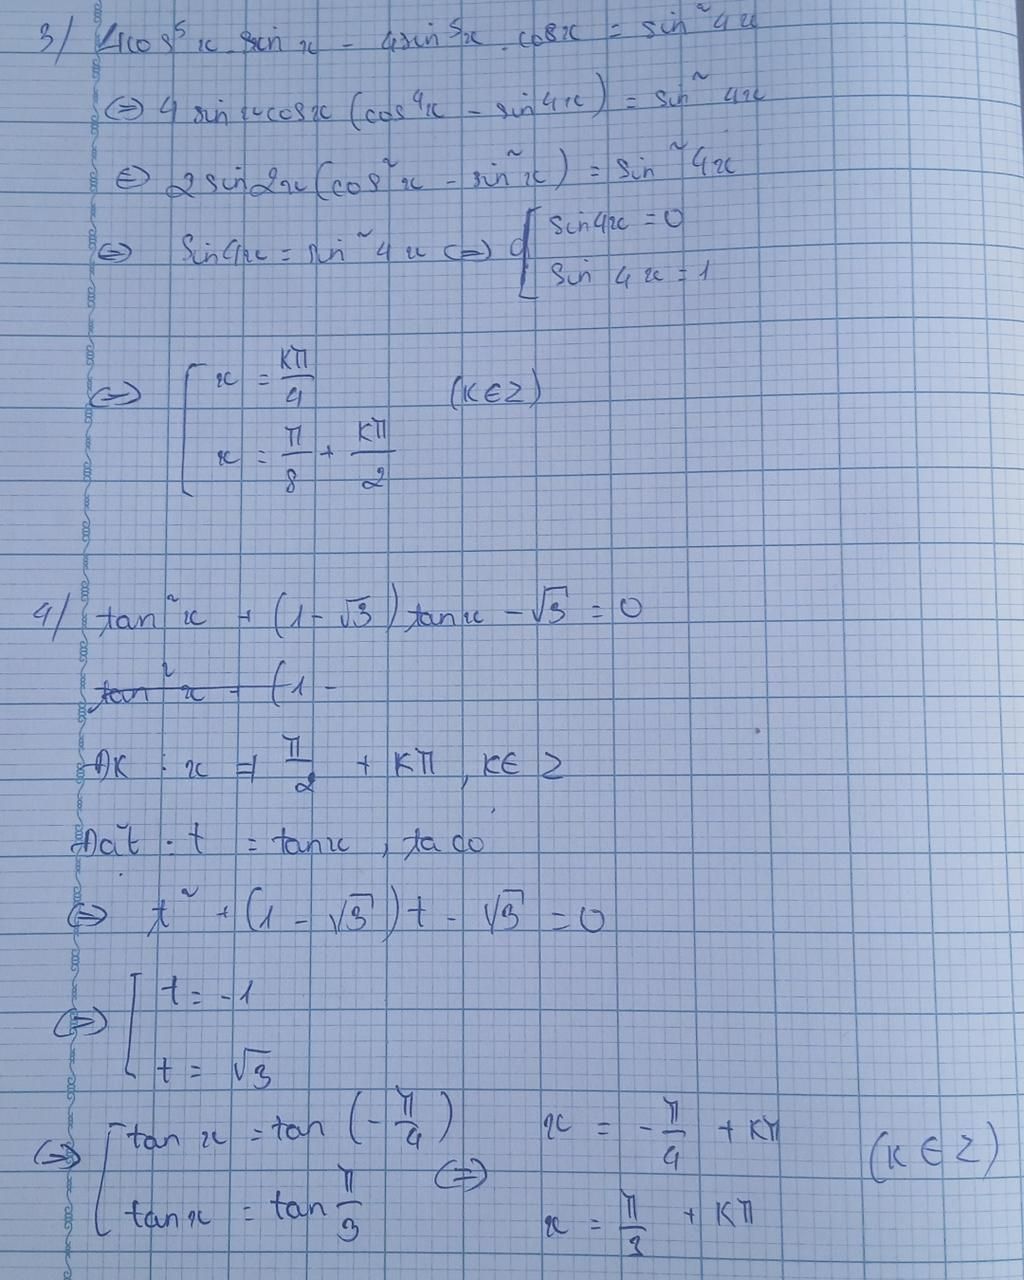 3/ 4cos⁵x.sin x - 4sin⁵x.cosx = sin²4x
⇔ 4 sin x cosx (cos⁴x - sin⁴x) = sin²4x
⇔ 2sin2x(cos²x - sin²x) = sin²4x
⇔ sin4x = sin²4x ⇔ [ sin4x = 0
sin 4x = 1
⇔ [ x = kπ/4 (k∈Z)
x = π/8 + kπ/2
4/ tan²x + (1-√3)tanx - √3 = 0
tan²x + (1 -
ĐK : x ≠ π/2 + kπ, k∈Z
Đặt : t = tanx, ta có
⇔ t² + (1 - √3)t - √3 = 0
⇔ [ t = -1
t = √3
⇔ [ tan x = tan (-π/4) ⇔ x = -π/4 + kπ (k∈Z)
tanx = tan π/3 x = π/3 + kπ